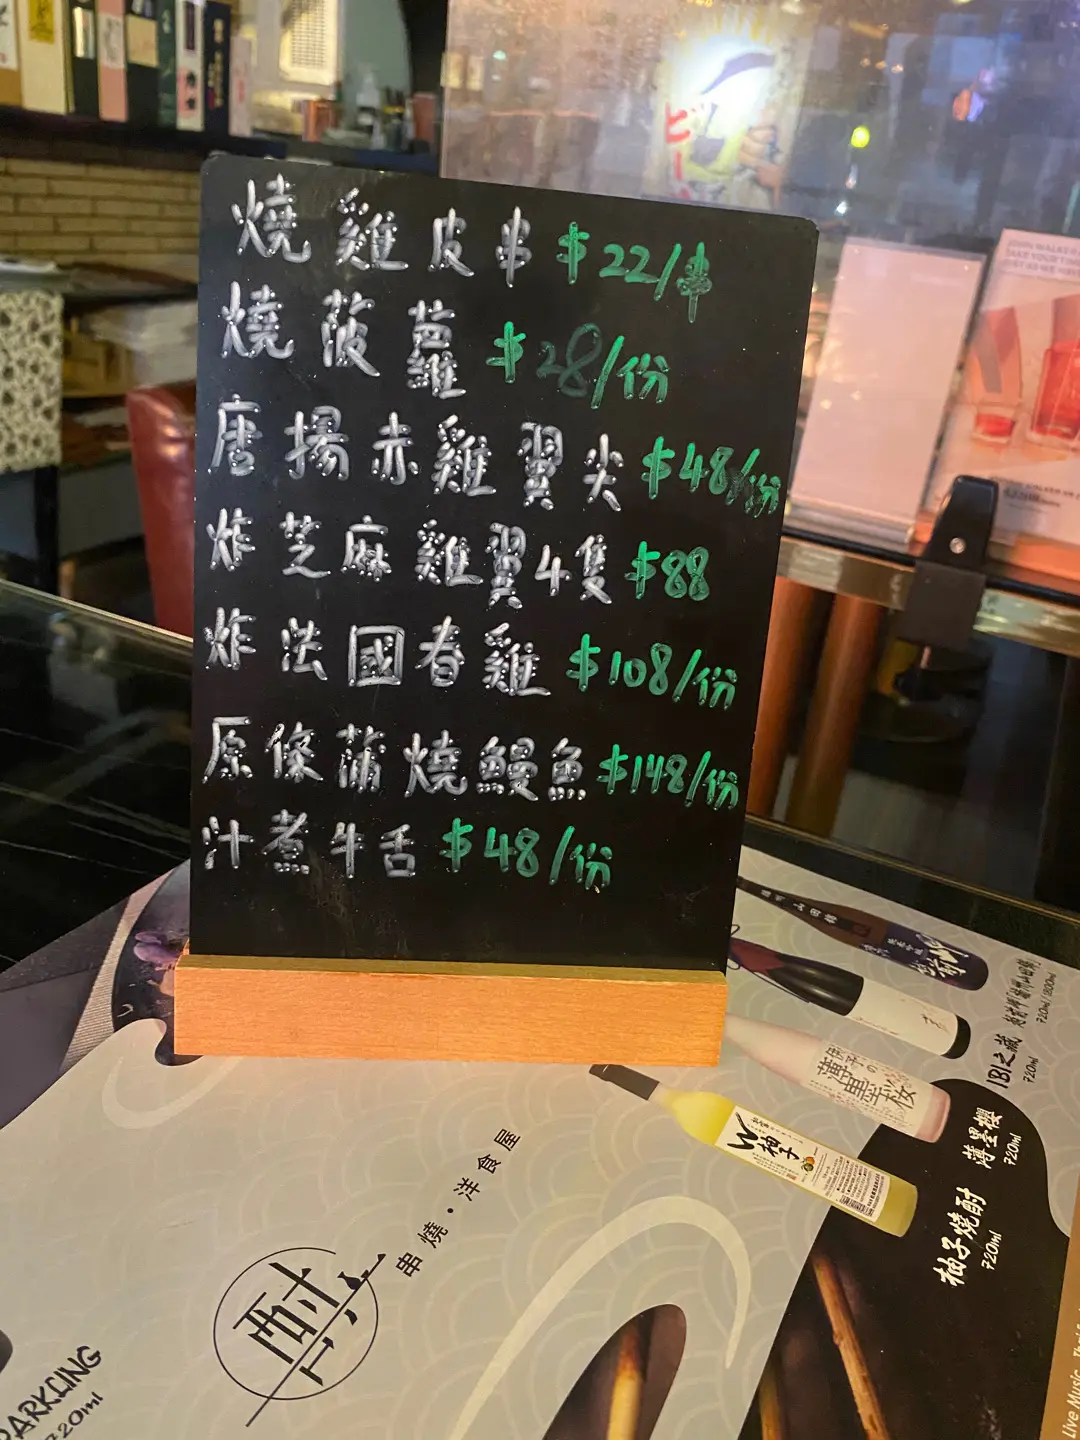 燒雞皮串 $22/串
燒菠蘿 $28/份
唐揚赤雞翼尖 $48/份
炸芝麻雞翼4隻 $88
炸法國春雞 $108/份
原條蒲燒鰻魚 $148/份
汁煮牛舌 $48/份
ビー
山田錦
720ml/1800ml
IBI之蔵
720ml
薄墨桜
薄墨櫻
720ml
W
柚子
柚子燒酎
720ml
串燒·洋食屋
酎
PARKLING
720ml
Live Music,